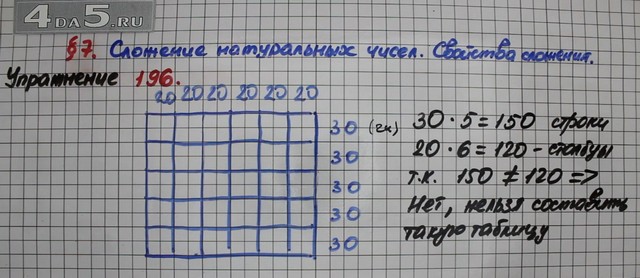 4DA5.RU
§7. Сложение натуральных чисел. Свойства сложения.
Упражнение 196.
20 20 20 20 20 20
30 (гк) 30 · 5 = 150 строки
30 20 · 6 = 120 - столбцы
30 т.к. 150 ≠ 120 =>
30 Нет, нельзя составить
30 такую таблицу